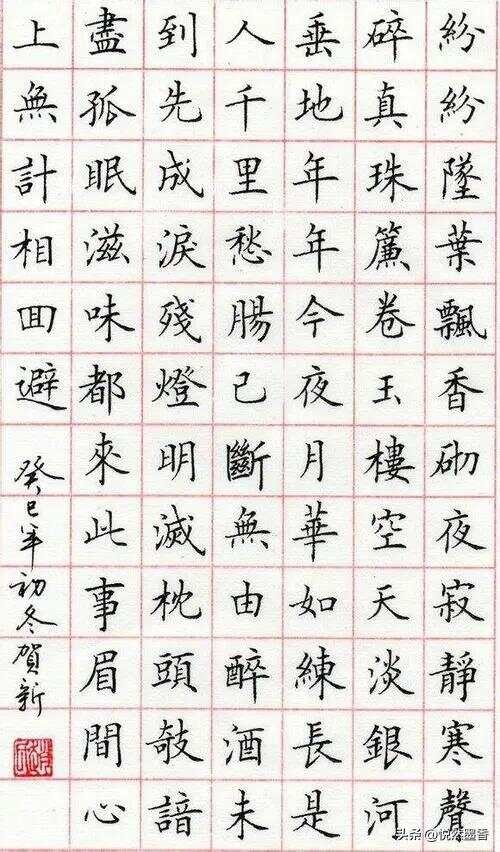 紛紛墜葉飄香砌夜寂靜寒聲
碎真珠簾卷玉樓空天淡銀河
垂地年年今夜月華如練長是
人千里愁腸已斷無由醉酒未
到先成淚殘燈明滅枕頭敧諳
盡孤眠滋味都來此事眉間心
上無計相回避
癸巳年初冬賀新
头条 @悦然墨香